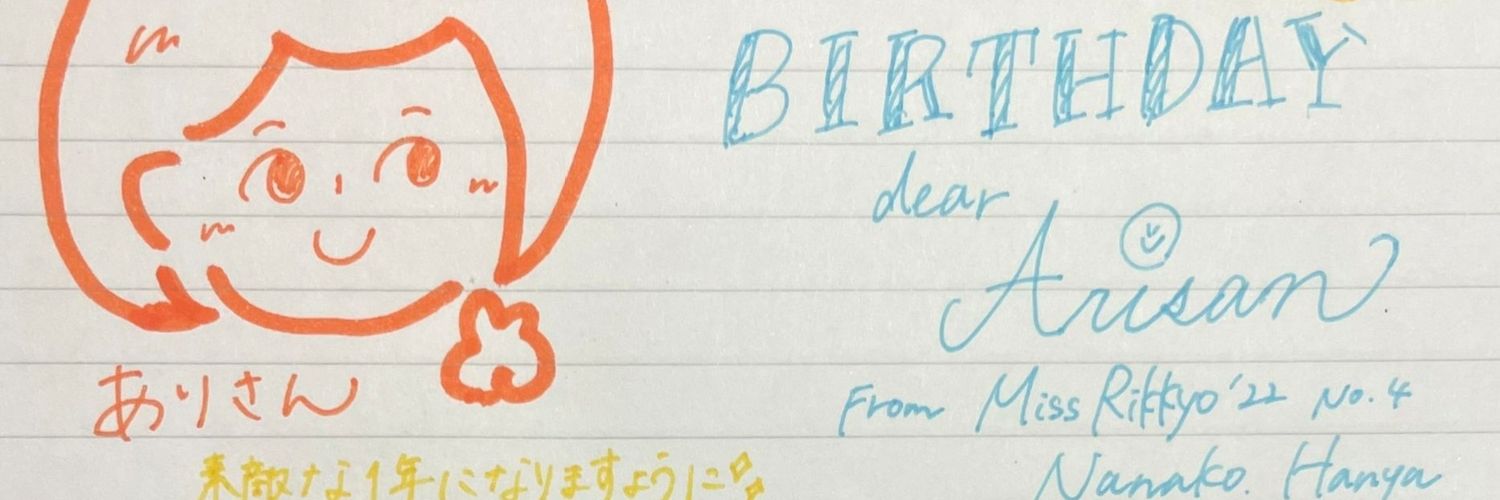 BIRTHDAY
dear
Arisan
From Miss Rikkyo'22 No.4
Nanako. Hanya
ありさん
素敵な1年になりますように